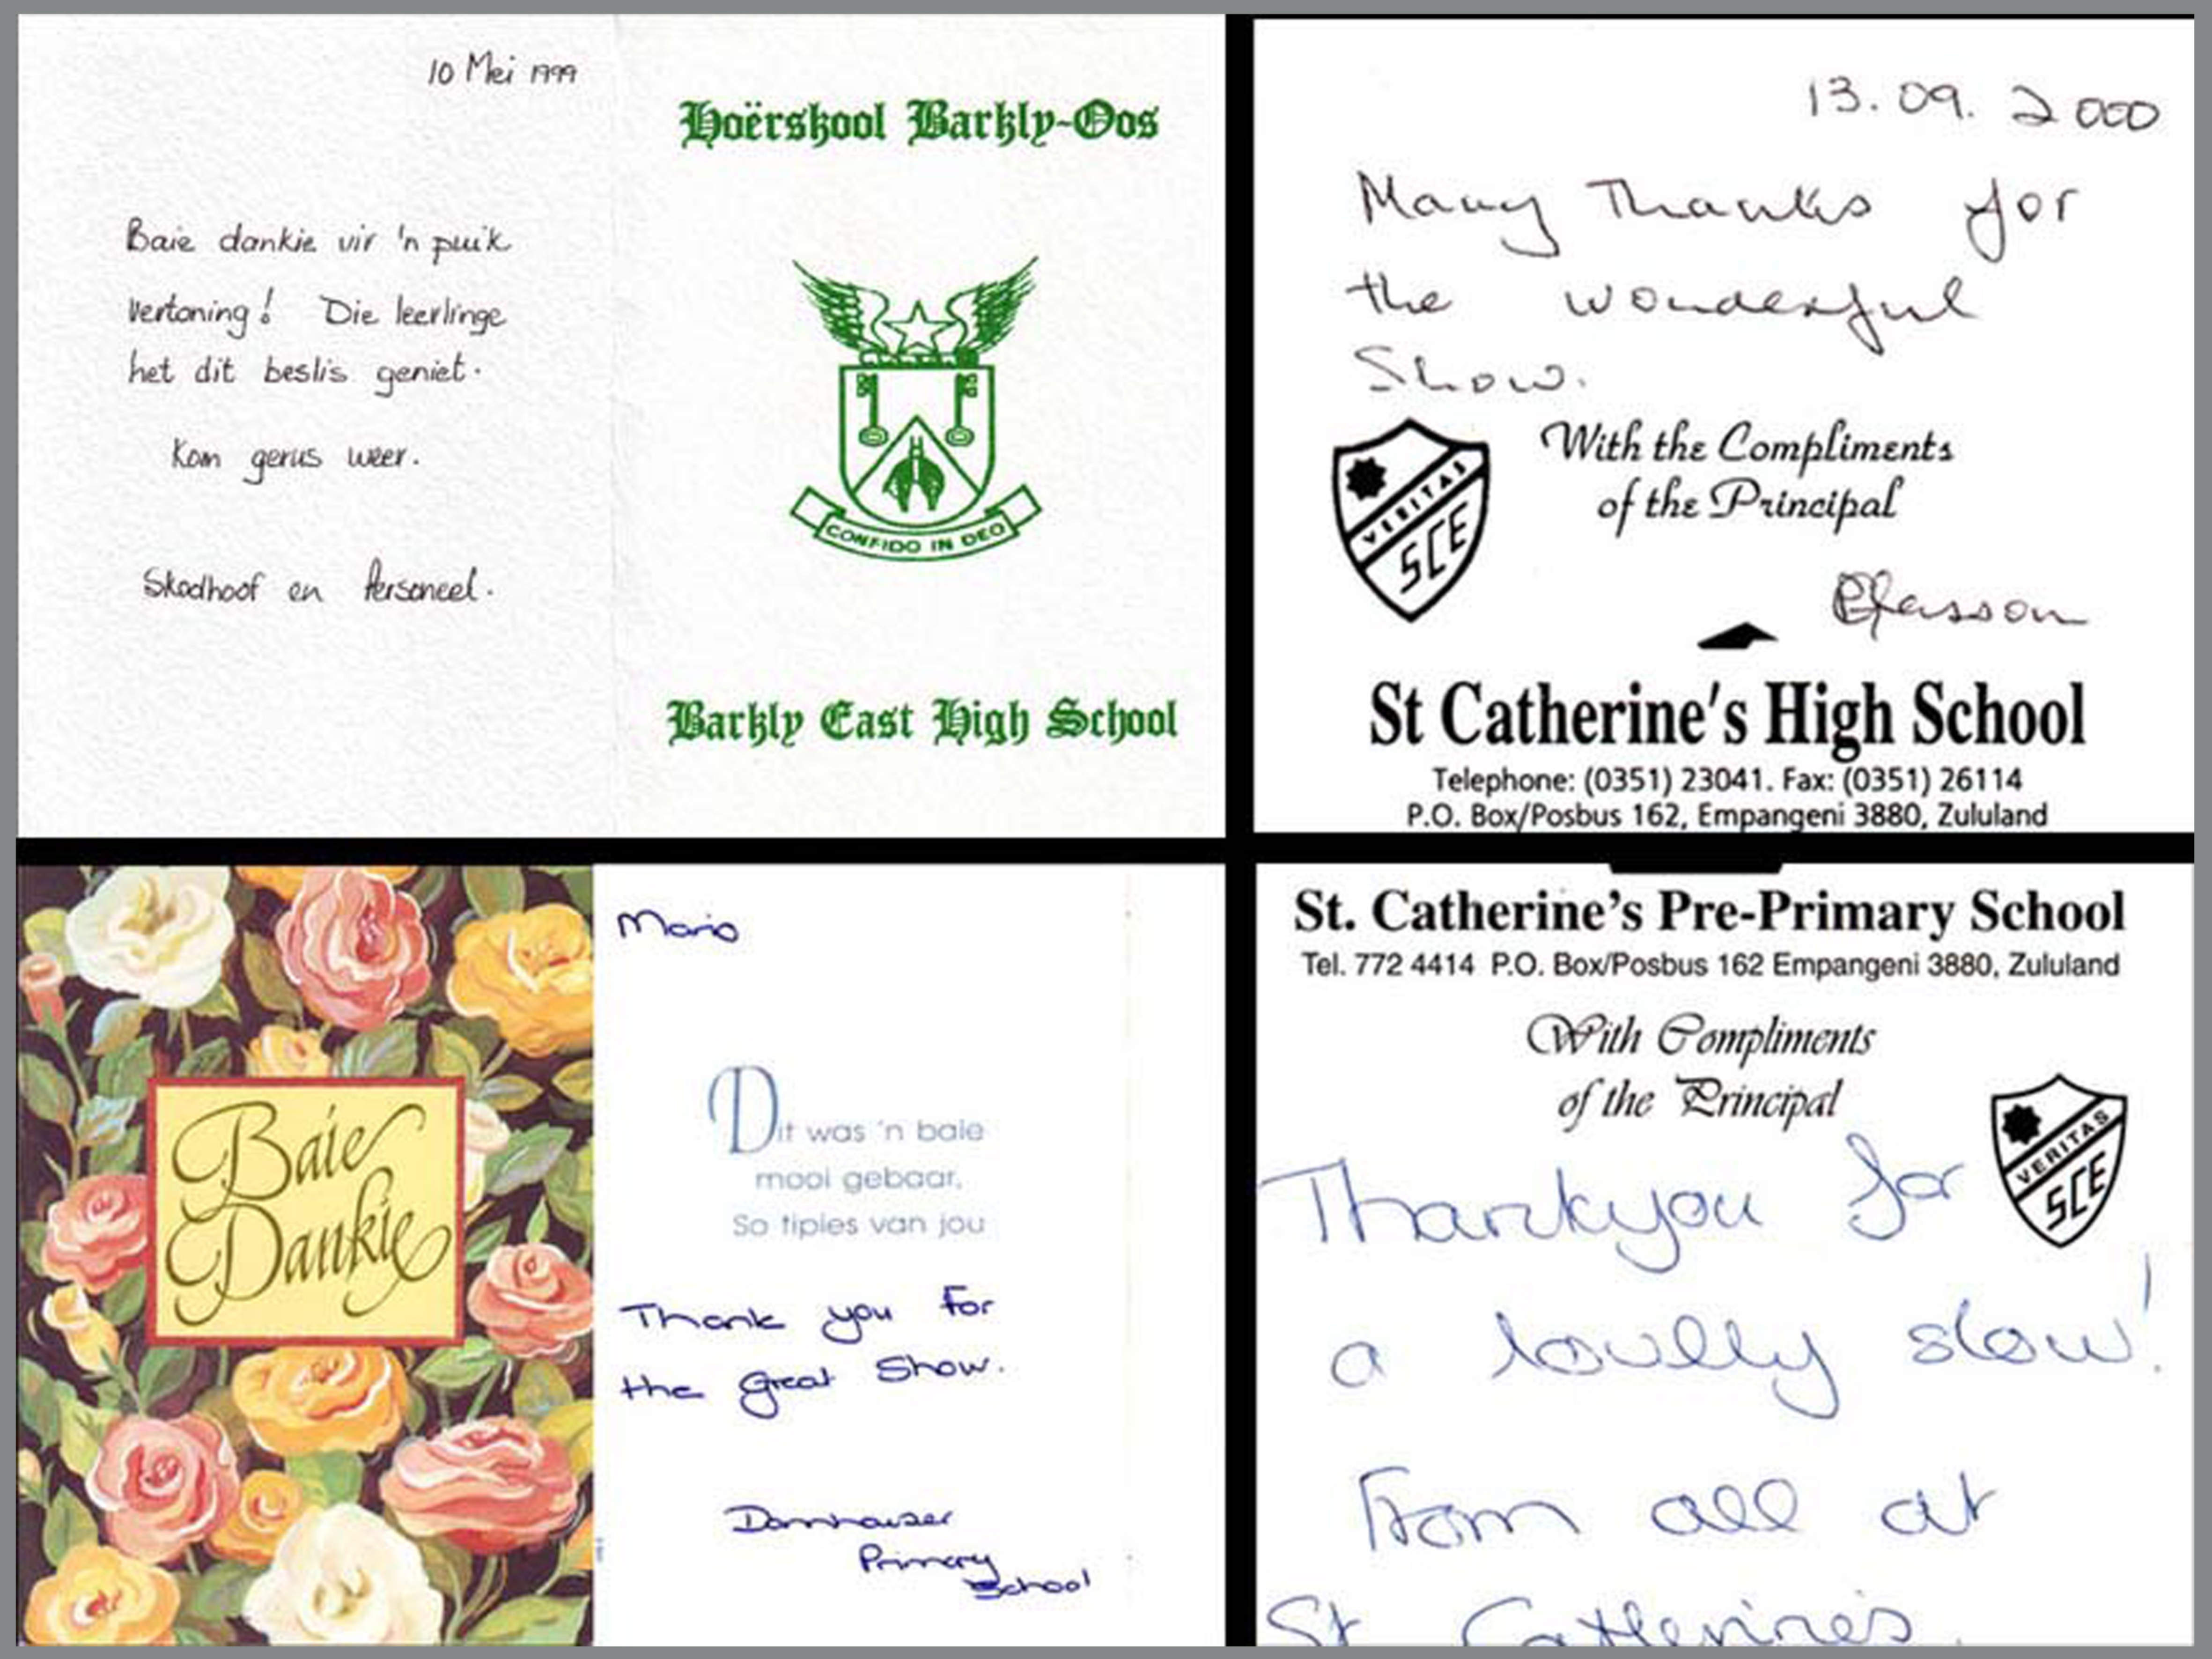 10 Mei 1999
Baie dankie vir 'n puik
vertoning! Die leerlinge
het dit beslis geniet.
Kom gerus weer.
Skoolhoof en Personeel.
Hoërskool Barkly-Oos
CONFIDO IN DEO
Barkly East High School
13.09.2000
Many Thanks for
the wonderful
Show.
With the Compliments
of the Principal
VERITAS
SCE
St Catherine's High School
Telephone: (0351) 23041. Fax: (0351) 26114
P.O. Box/Posbus 162, Empangeni 3880, Zululand
Baie
Dankie
Mario
Dit was 'n baie
mooi gebaar,
So tiples van jou
Thank you for
the Great Show.
Dannhauser
Primary
School
St. Catherine's Pre-Primary School
Tel. 772 4414 P.O. Box/Posbus 162 Empangeni 3880, Zululand
With Compliments
of the Principal
VERITAS
SCE
Thankyou for
a lovelly show!
From all at
St Catherine's.